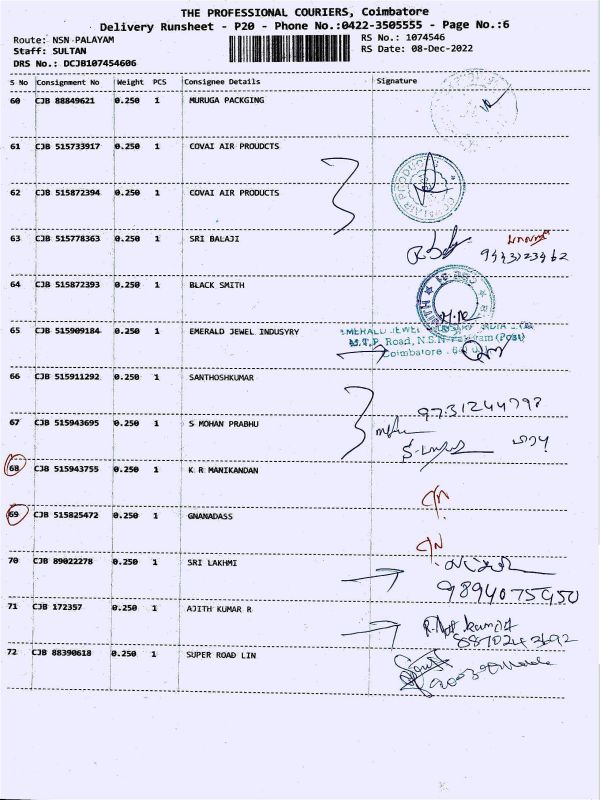 THE PROFESSIONAL COURIERS, Coimbatore
Delivery Runsheet - P20 - Phone No.:0422-3505555 - Page No.:6
Route: NSN PALAYAM
RS No.: 1074546
Staff: SULTAN
RS Date: 08-Dec-2022
DRS No.: DCJB107454606
S No Consignment No Weight PCS Consignee Details Signature
60 CJB 88849621 0.250 1 MURUGA PACKGING
61 CJB 515733917 0.250 1 COVAI AIR PROUDCTS
62 CJB 515872394 0.250 1 COVAI AIR PRODUCTS
63 CJB 515778363 0.250 1 SRI BALAJI
64 CJB 515872393 0.250 1 BLACK SMITH
65 CJB 515909184 0.250 1 EMERALD JEWEL INDUSYRY
M.T.P. Road, N.S.N. (Post)
Coimbatore
66 CJB 515911292 0.250 1 SANTHOSHKUMAR
9731244798
67 CJB 515943695 0.250 1 S MOHAN PRABHU
68 CJB 515943755 0.250 1 K R MANIKANDAN
C/N
69 CJB 515825472 0.250 1 GNANADASS
C/N
70 CJB 89022278 0.250 1 SRI LAKHMI
9894075950
71 CJB 172357 0.250 1 AJITH KUMAR R
8870243692
72 CJB 88390618 0.250 1 SUPER ROAD LIN